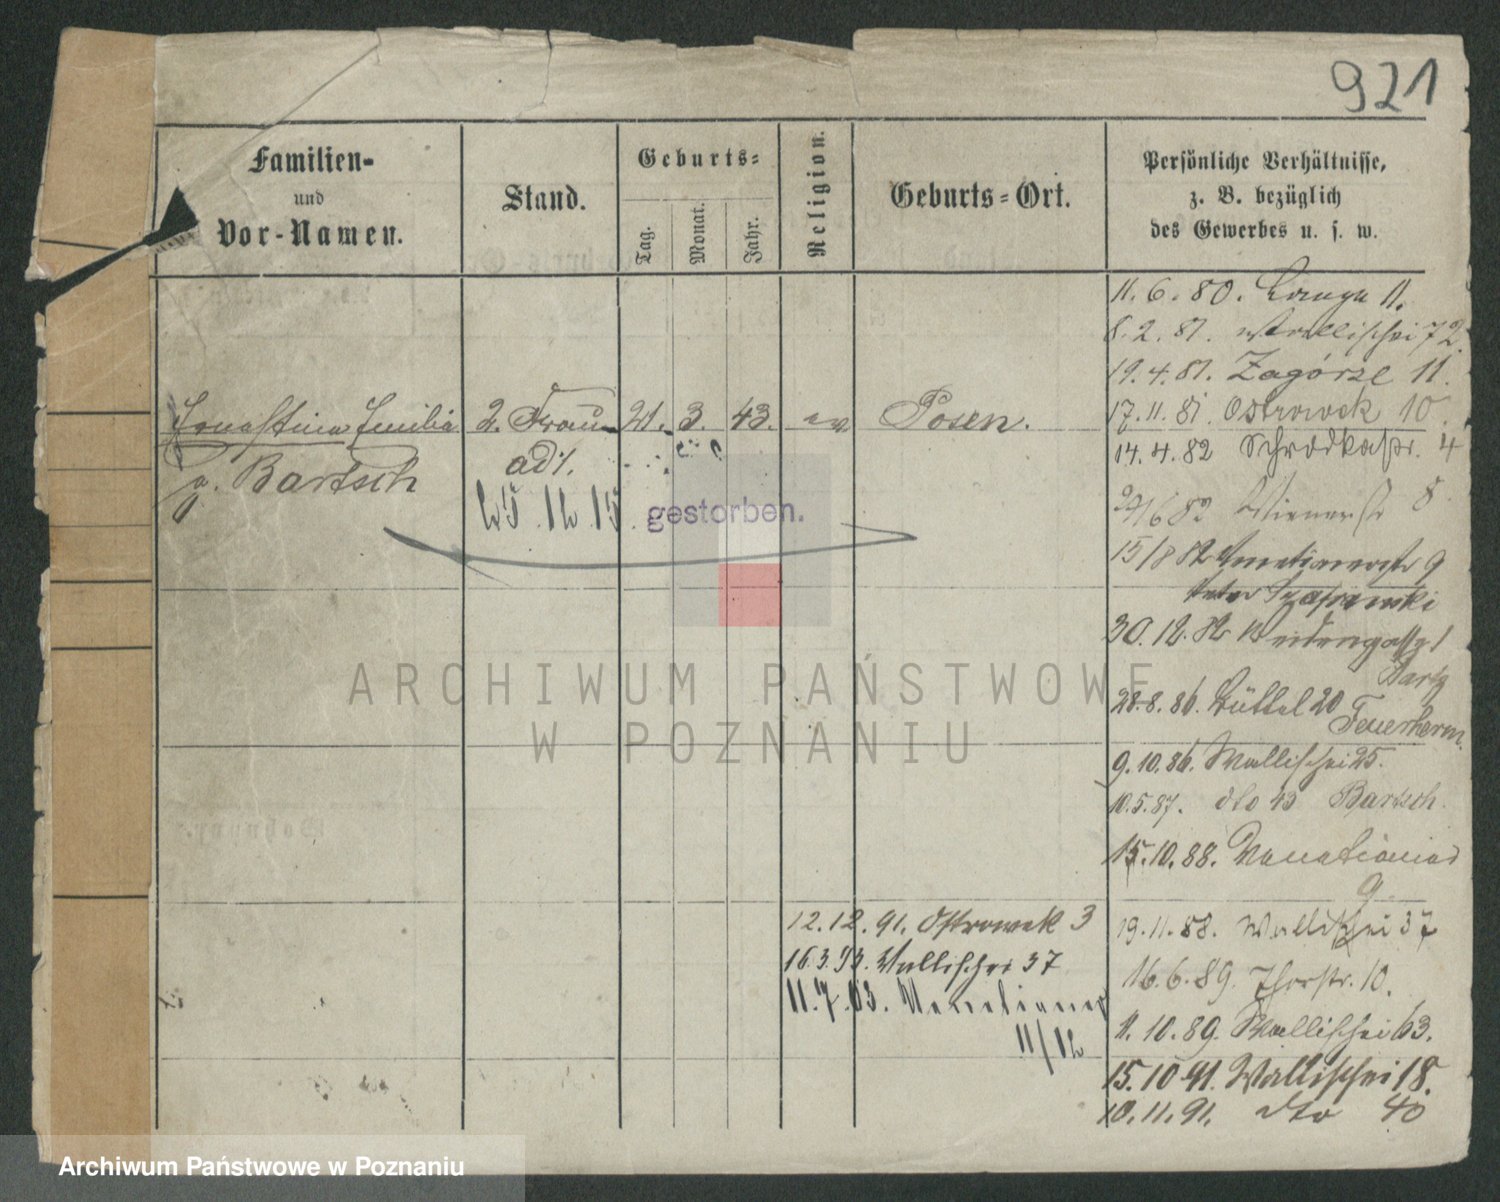 921
Familien-
und
Vor-Namen.
Stand.
Geburts-
Tag.
Monat.
Jahr.
Religion.
Geburts-Ort.
Persönliche Verhältnisse,
z. B. bezüglich
des Gewerbes u. s. w.
Ernestine Emilie
g. Bartsch
2. Frau
ad 1.
21. 3. 43. ev
Posen.
25.12.15. gestorben.
11.6.80. 11.
8.2.81. Wallischei 72.
19.4.81. Zagórze 11.
17.11.81. Ostrowek 10
14.4.82 Schrodkastr. 4
24/6 82 Wienerstr 8.
15/8 82 Venetianerstr 9
30.12.82 Weidengasse 1
Bartz
28.8.86. Büttel 20
Feuerherm.
9.10.86. Wallischei 25.
10.5.87. dto 43 Bartsch.
15.10.88. Venetianer
9.
19.11.88. Wallischei 37
16.6.89. Thorstr. 10.
11.10.89. Wallischei 63.
15.10.91. Wallischei 18.
10.11.91. dto 40
12.12.91. Ostrowek 3
16.3.93. Wallischei 37
11.7.03. Venetianer
11/12
ARCHIWUM PAŃSTWOWE
W POZNANIU
Archiwum Państwowe w Poznaniu